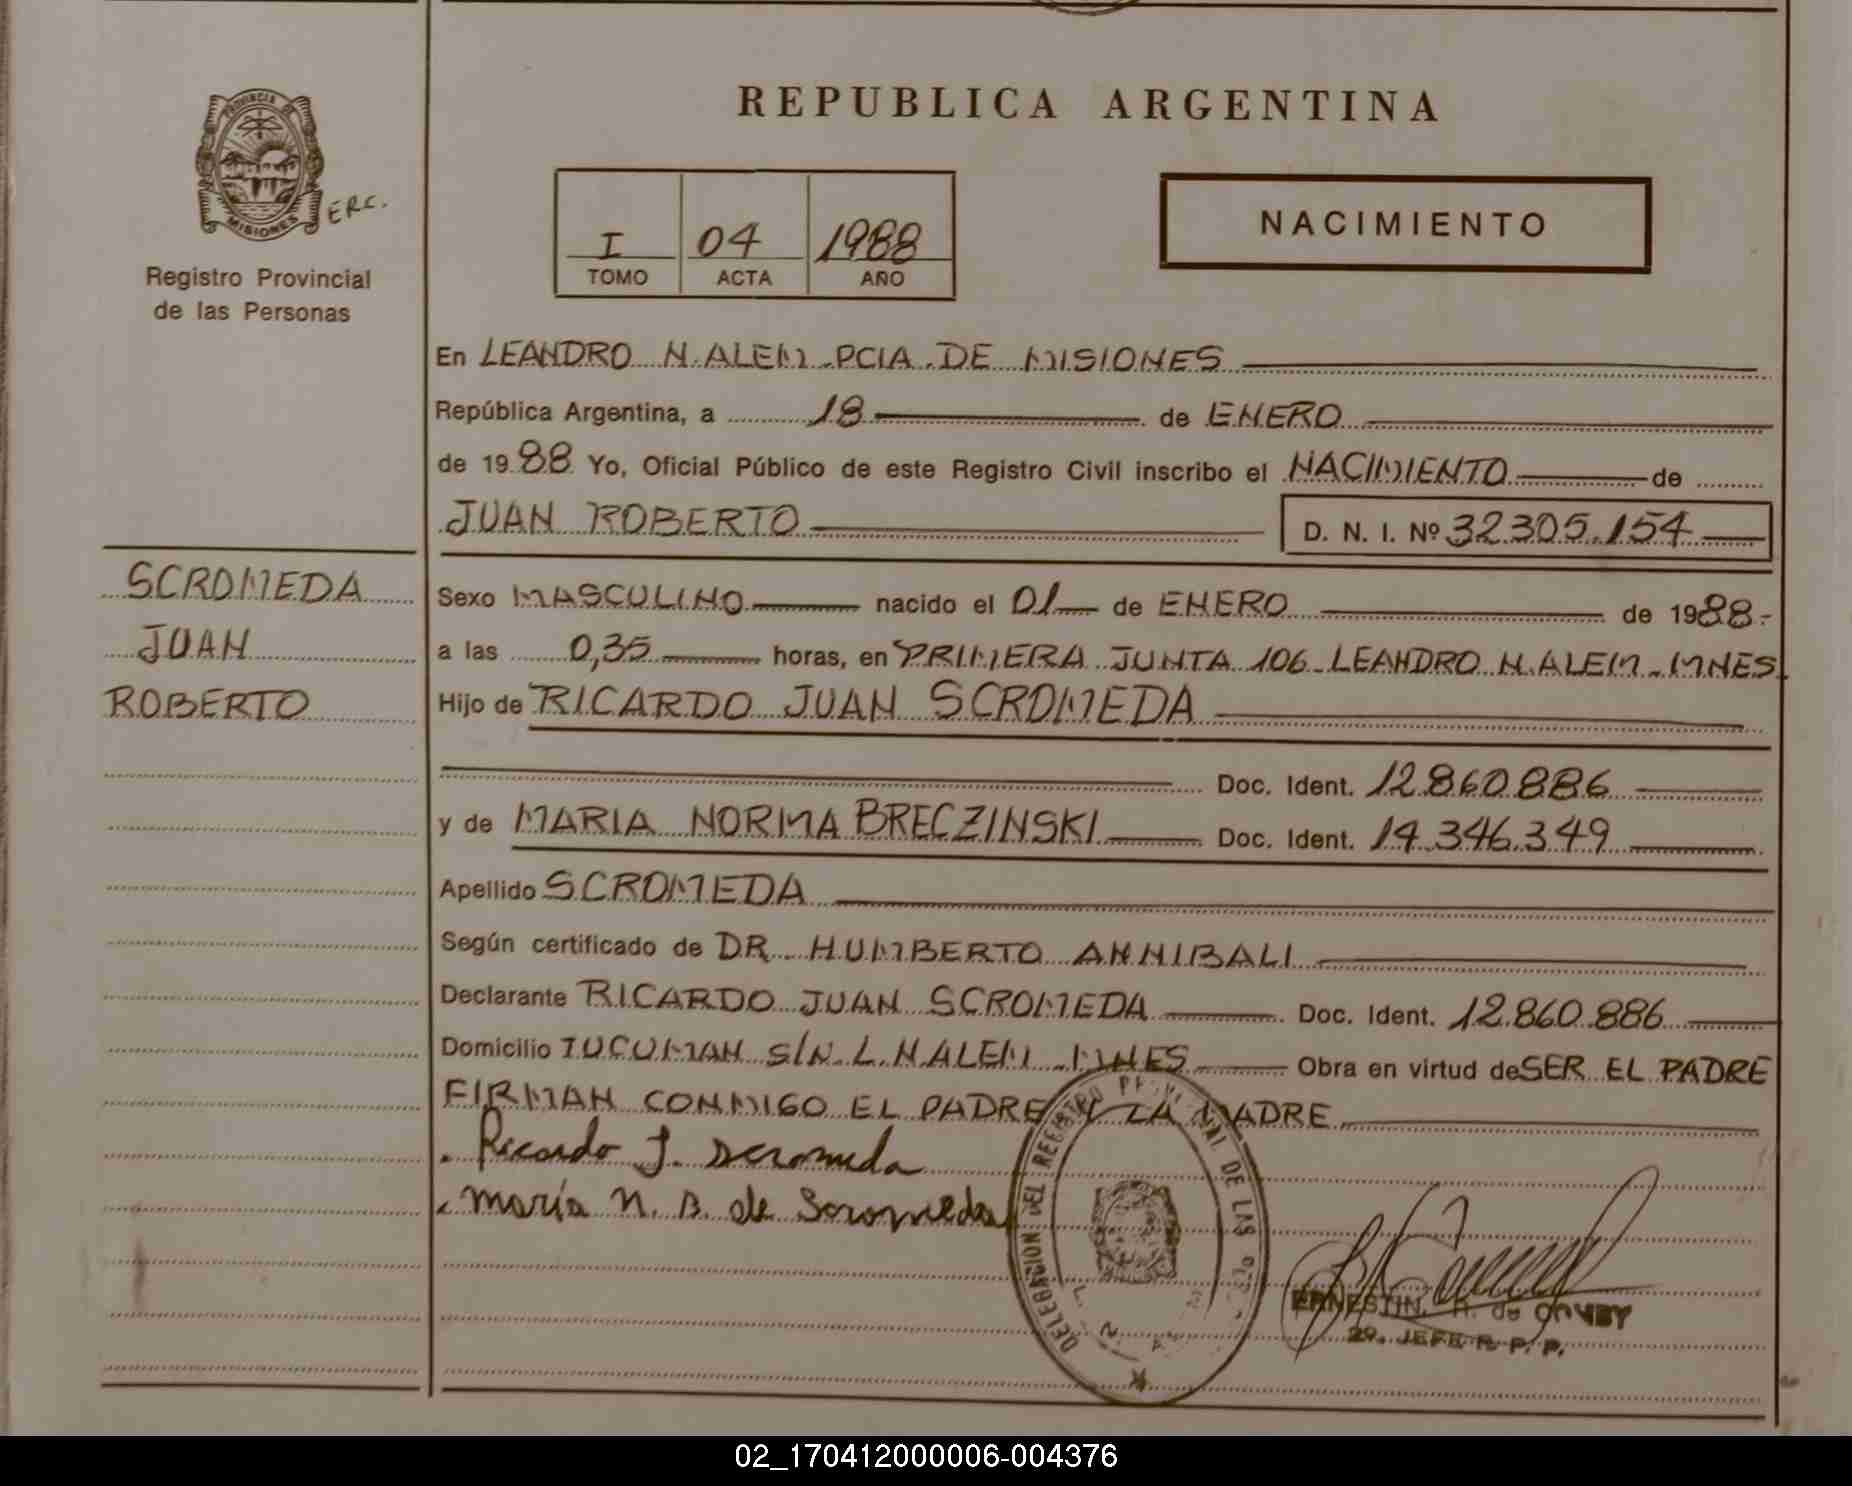 REPUBLICA ARGENTINA
PROVINCIA DE
MISIONES
ERC.
Registro Provincial
de las Personas
I 04 1988
TOMO ACTA AÑO
NACIMIENTO
En LEANDRO N. ALEM - PCIA. DE MISIONES
República Argentina, a 18 de ENERO
de 1988 Yo, Oficial Público de este Registro Civil inscribo el NACIMIENTO de
JUAN ROBERTO D. N. I. Nº 32.305.154
SCROMEDA
JUAN
ROBERTO
Sexo MASCULINO nacido el 01 de ENERO de 1988.-
a las 0,35 horas, en PRIMERA JUNTA 106 - LEANDRO N. ALEM - MNES
Hijo de RICARDO JUAN SCROMEDA
Doc. Ident. 12.860.886
y de MARIA NORMA BRECZINSKI Doc. Ident. 14.346.349
Apellido SCROMEDA
Según certificado de DR. HUMBERTO ANNIBALI
Declarante RICARDO JUAN SCROMEDA Doc. Ident. 12.860.886
Domicilio TUCUMAN S/N. L. N. ALEM - MNES Obra en virtud de SER EL PADRE
FIRMAN CONMIGO EL PADRE Y LA MADRE
Ricardo J. Scromeda
María N. B. de Scromeda
DELEGACION DEL REGISTRO PROVINCIAL DE LAS
2º. JEFE R. P. P.
02_170412000006-004376